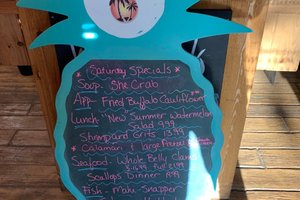 * Saturday Specials *
Soup- She Crab
App- Fried Buffalo Cauliflower
Lunch "New Summer Watermelon
Salad 9.99
Shrimp and Grits 13.99
* Calamari & large
Seafood- Whole Belly Clams
Scallops Dinner
Fish- Mako - Snapper